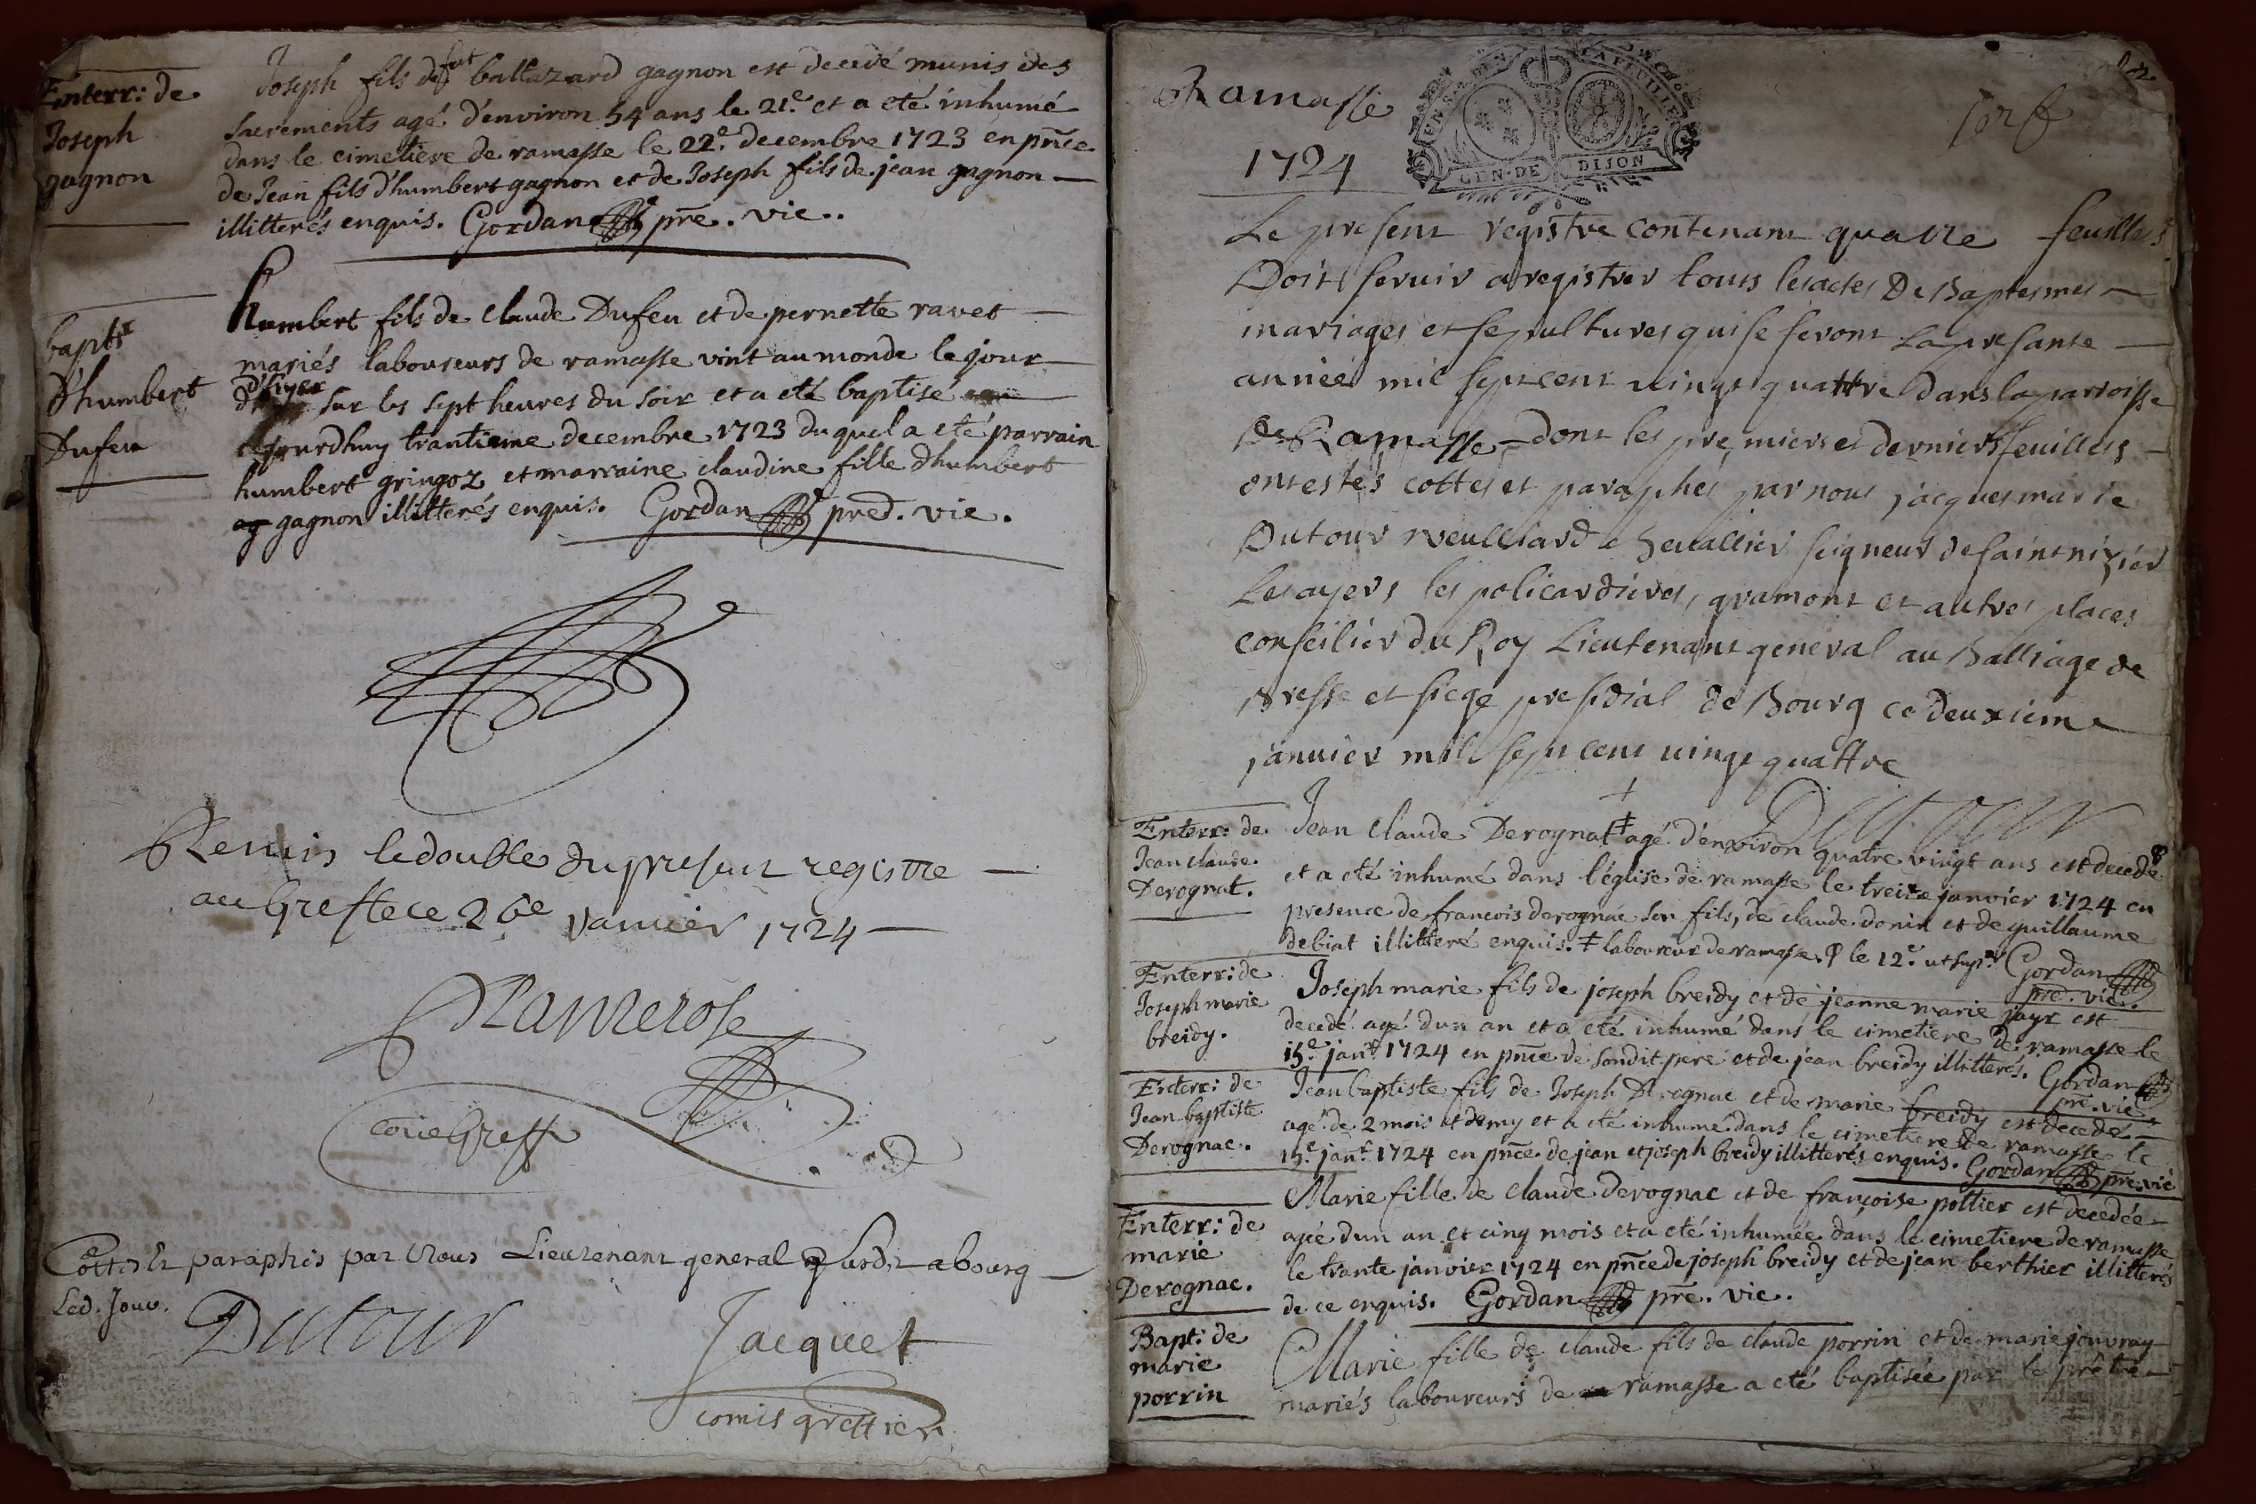 Enterr: de
Joseph
gagnon
Joseph fils de fut baltazard gagnon est decedé munis des
sacrements agé d'environ 54 ans le 21e et a eté inhumé
dans le cimetiere de ramasse le 22e. decembre 1723 en pñce
de Jean fils d'humbert gagnon et de Joseph fils de jean gagnon
illitterés enquis. Gordan pre. vic.
bapte
D'humbert
Dufeu
humbert fils de claude Dufeu et de pernette ravet
mariés laboureurs de ramasse vint au monde le jour
d'hyer sur les sept heures du soir et a eté baptisé
jourdhuy trantieme decembre 1723 duquel a eté parrain
humbert gringoz et marraine claudine fille dhumbert
ag gagnon illitterés enquis. Gordan pred. vic.
Remis le double du present registre
au Greffe ce 26e Janvier 1724
Cottés et paraphés par Nous Lieutenant general susdt a bourg
Led. Jour.
Dutour
Jacquet
comis greffier
Ramasse
1724
GEN. DE DIJON
Le present registre contenant quatre feuilles
Doit servir a registrer tous les actes De Baptesmes
mariages et sepultures qui se feront La presante
année mil sept cent vingt quattre dans la parroisse
De Ramasse dont les premiers et derniers feuillets
ont estés cottes et paraphés par nous jacques marie
Dutour vuulliard chevallier seigneur de saint nizier
Les ayers les policardieres, gramont et autres places
conseilier du Roy Lieutenant general au Balliage de
Bresse et siege presidial de Bourg ce deuxieme
janvier mil sept cent vingt quattre
Dutour
Enterr: de
Jean claude
Derognat.
Jean claude Derognat ‡ agé d'environ quatre vingt ans est decedé
et a eté inhumé dans l'église de ramasse le treize janvier 1724 en
presence de francois derognac son fils, de claude donin et de guillaume
debiat illitteré enquis. ‡ laboureur de ramasse. le 12e. ut supr. Gordan
pre. vic.
Enterr: de
Joseph marie
breidy.
Joseph marie fils de joseph breidy et de jeanne marie jayr est
decedé agé dun an et a eté inhumé dans le cimetiere de ramasse le
15e janr 1724 en pñce de sondit pere et de jean breidy illitterés. Gordan
pre. vic.
Enterr: de
Jean baptiste
Derognac.
Jean baptiste fils de Joseph Derognac et de marie breidy est decedé
agé de 2 mois et demy et a eté inhumé dans le cimetiere de ramasse le
15e janr 1724 en pñce de jean et joseph breidy illitterés enquis. Gordan pre. vic
Enterr: de
marie
Derognac.
Marie fille de claude derognac et de françoise poltier est decedée
agée dun an et cinq mois et a eté inhumée dans le cimetiere de ramasse
le trante janvier 1724 en pñce de joseph breidy et de jean berthier illitterés
de ce enquis. Gordan pre. vic.
Bapt: de
marie
porrin
Marie fille de claude fils de claude porrin et de marie jouvray
mariés laboureurs de ramasse a eté baptisée par le prêtre